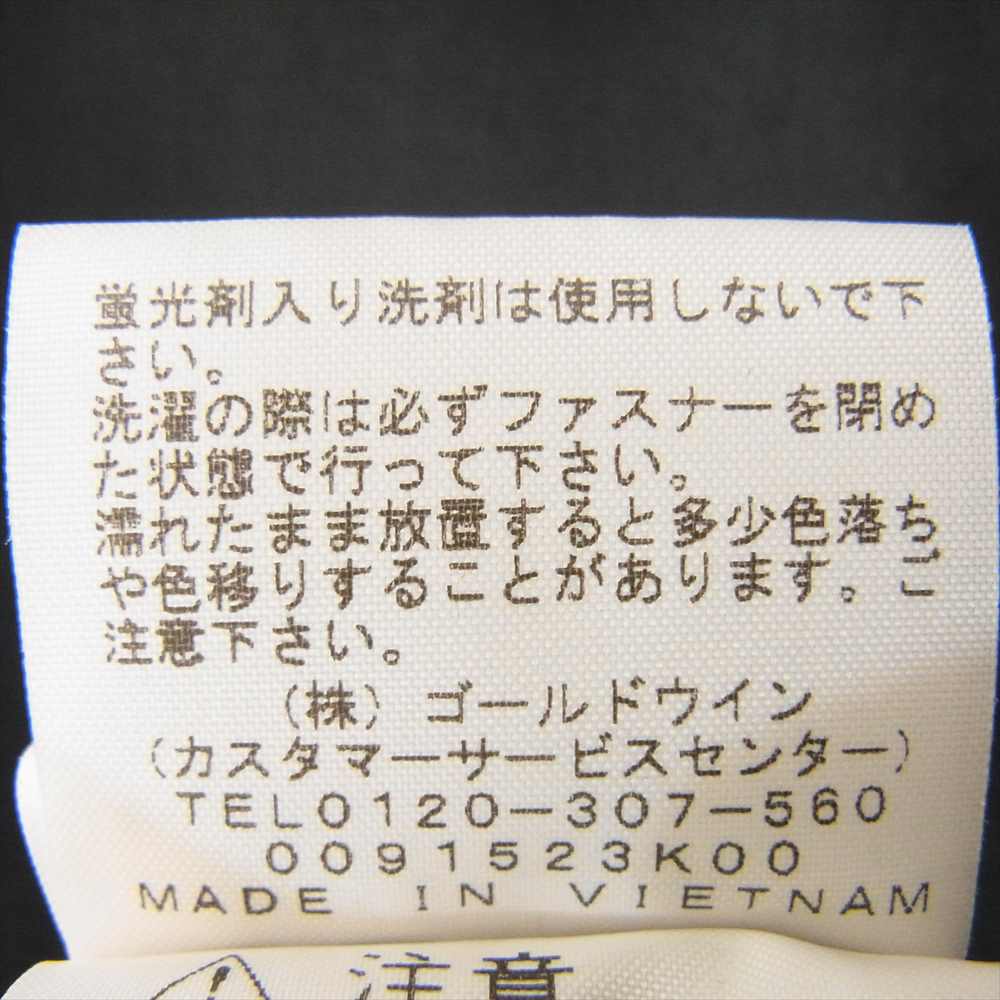 蛍光剤入り洗剤は使用しないで下
さい。
洗濯の際は必ずファスナーを閉め
た状態で行って下さい。
濡れたまま放置すると多少色落ち
や色移りすることがあります。ご
注意下さい。
(株) ゴールドウイン
(カスタマーサービスセンター)
TEL0120-307-560
0091523K00
MADE IN VIETNAM
注意